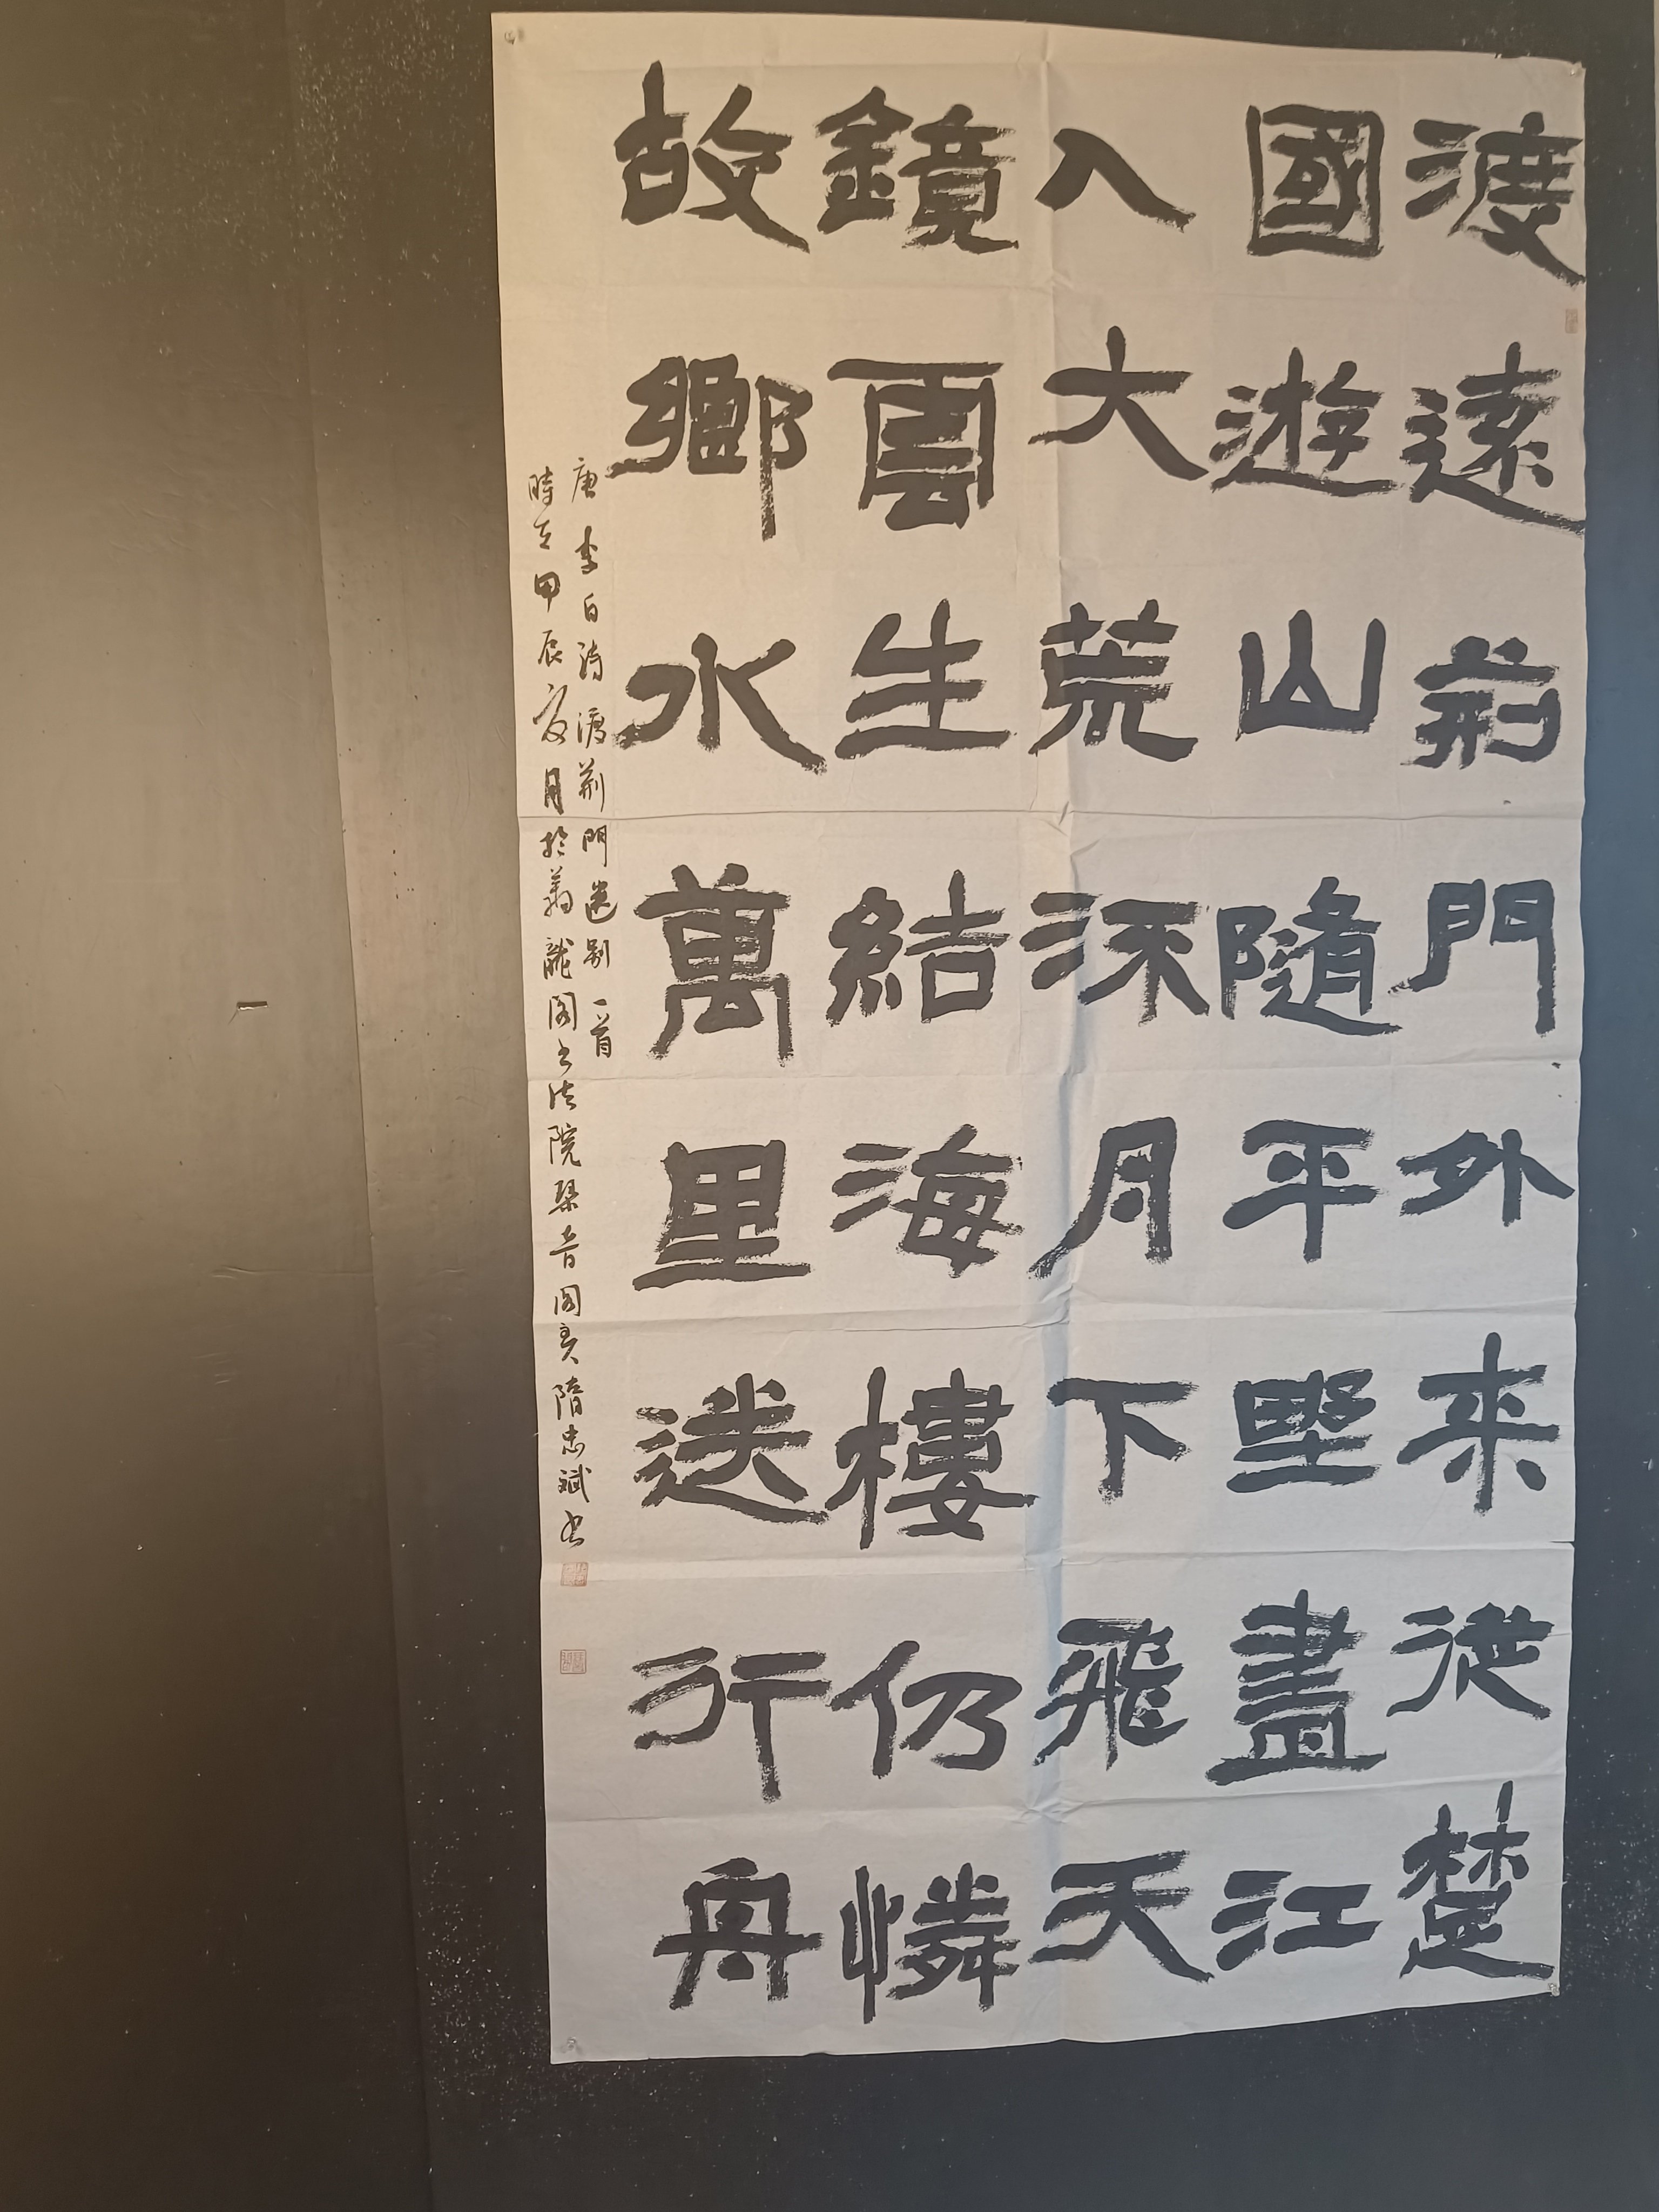 渡遠荊門外来從楚
國遊山隨平野盡江
入大荒流月下飛天
鏡雲生結海樓仍憐
故鄉水萬里送行舟
唐李白詩渡荊門送別一首
時在甲辰夏月於龍閣书法院琴音閣隋忠斌书